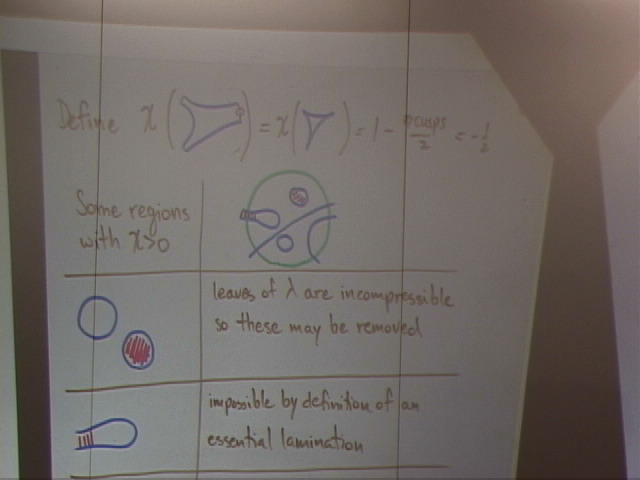 Define χ( ) = χ( ) = 1 - #cusps/2 = -1/2
Some regions
with χ>0
leaves of λ are incompressible
so these may be removed
impossible by definition of an
essential lamination